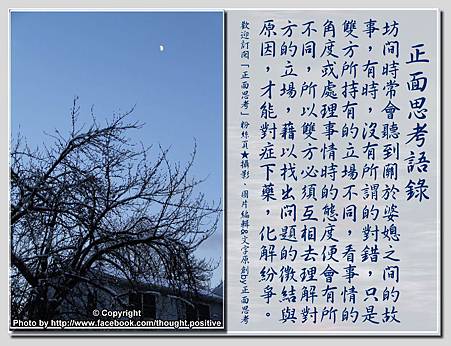 正面思考語錄
坊間時常會聽到關於婆媳之間的故
事，有時，沒有所謂的對錯，只是
雙方所持有的立場不同，看事情的
角度或處理事情時的態度便會有所
不同，所以雙方必須互相去理解對
方的立場，藉以找出問題的徵結與
原因，才能對症下藥，化解紛爭。
歡迎訂閱「正面思考」粉絲頁★攝影、圖片編輯&文字原創by正面思考
© Copyright
Photo by http://www.facebook.com/thought.positive